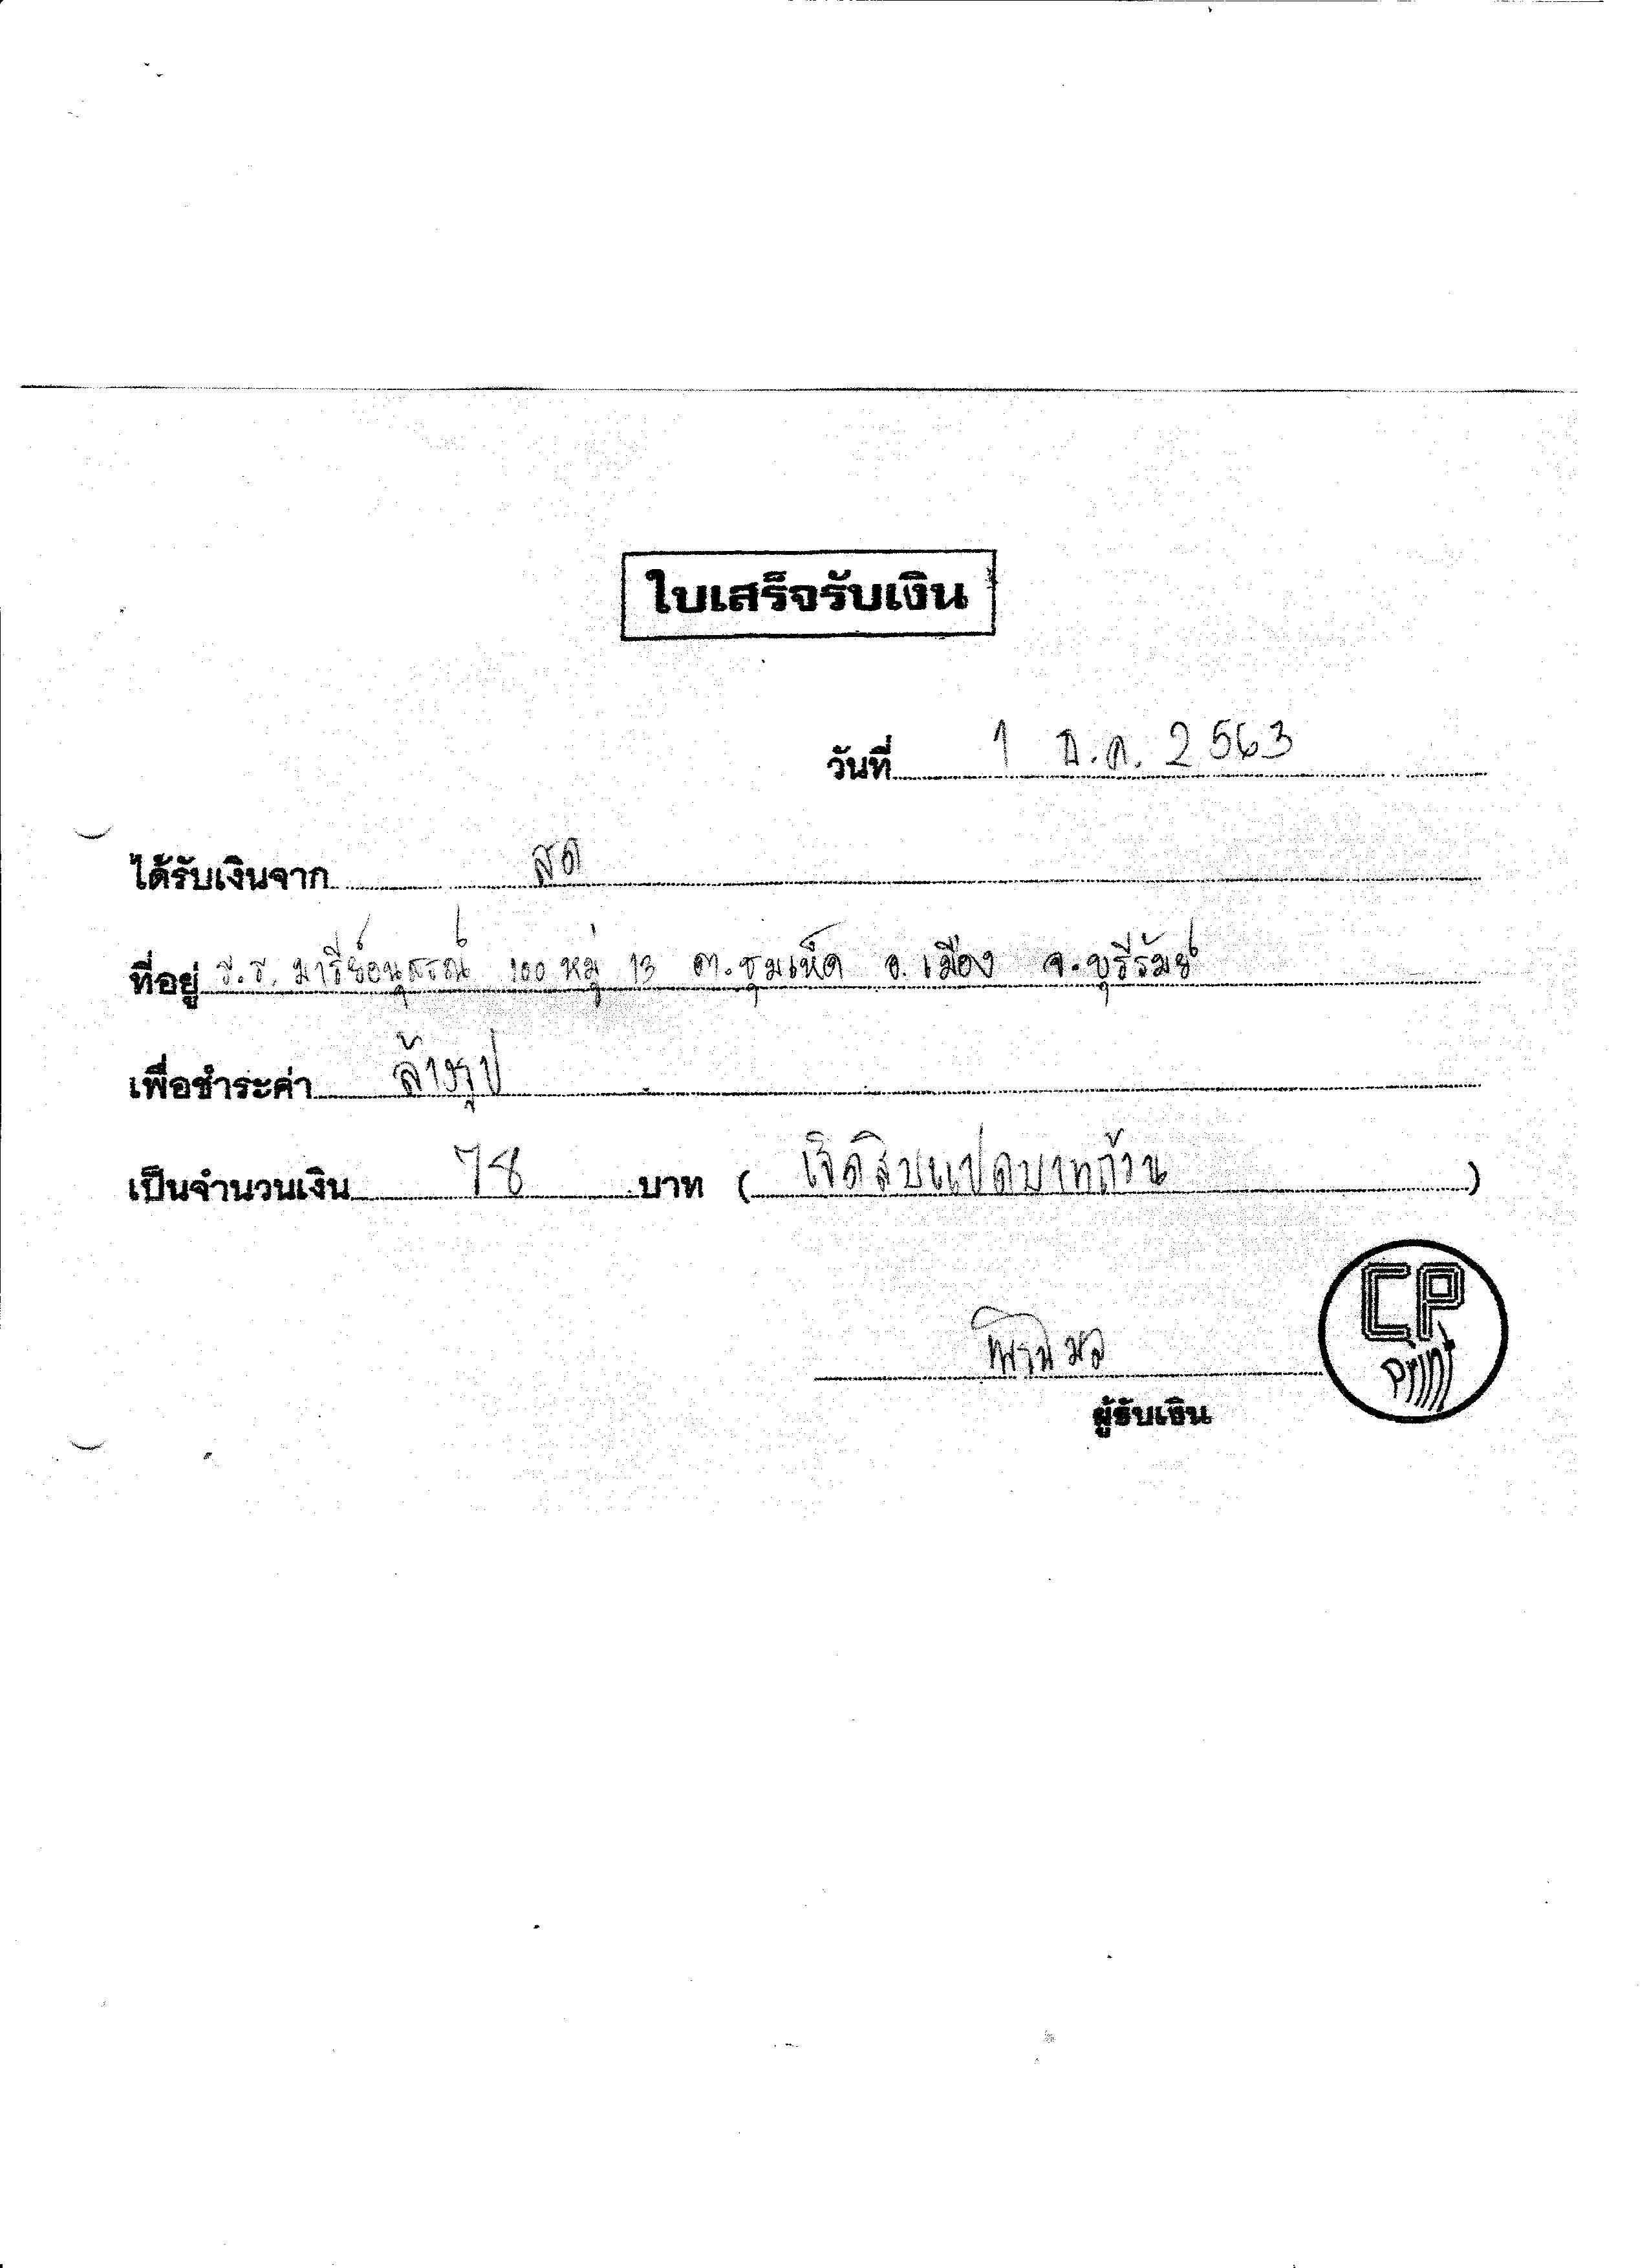 ใบเสร็จรับเงิน
วันที่ 1 ธ.ค. 2563
ได้รับเงินจาก สด
ที่อยู่ ร.ร. มารีย์อนุสรณ์ 100 หมู่ 13 ต.ชุมเห็ด อ.เมือง จ.บุรีรัมย์
เพื่อชำระค่า ล้างรูป
เป็นจำนวนเงิน 78 บาท ( เจ็ดสิบแปดบาทถ้วน )
CP
Print
ผู้รับเงิน